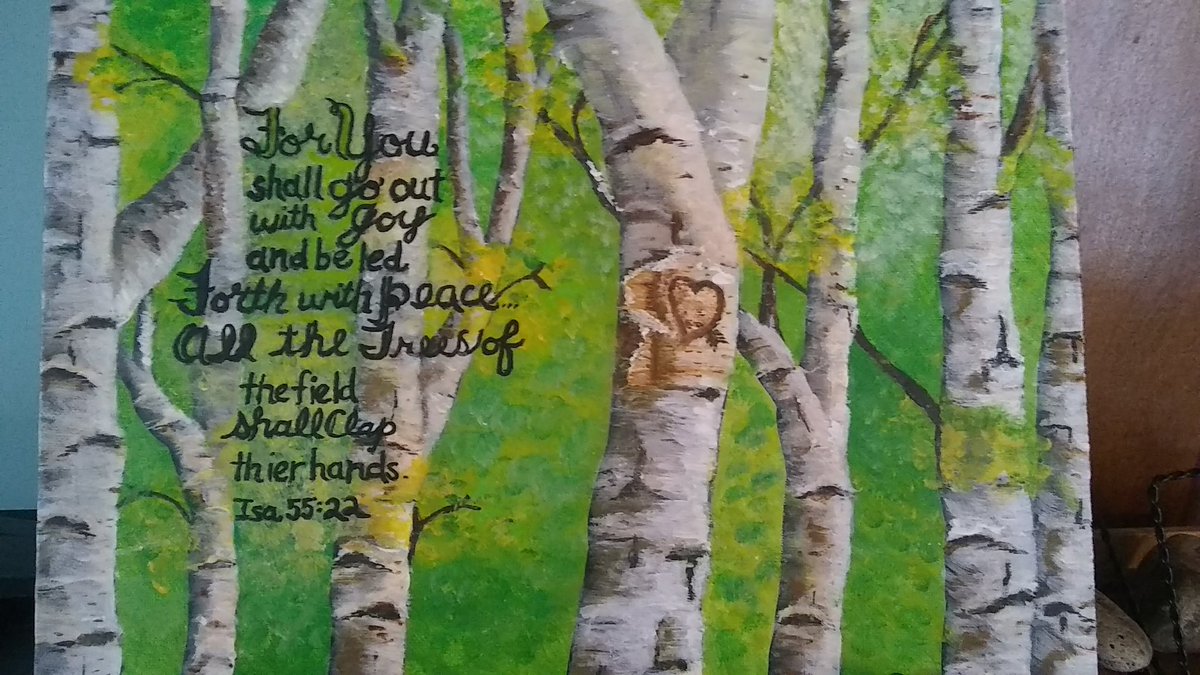 For You
shall go out
with Joy
and be led
Forth with peace...
All the Trees of
the field
shall Clap
thier hands.
Isa. 55:22